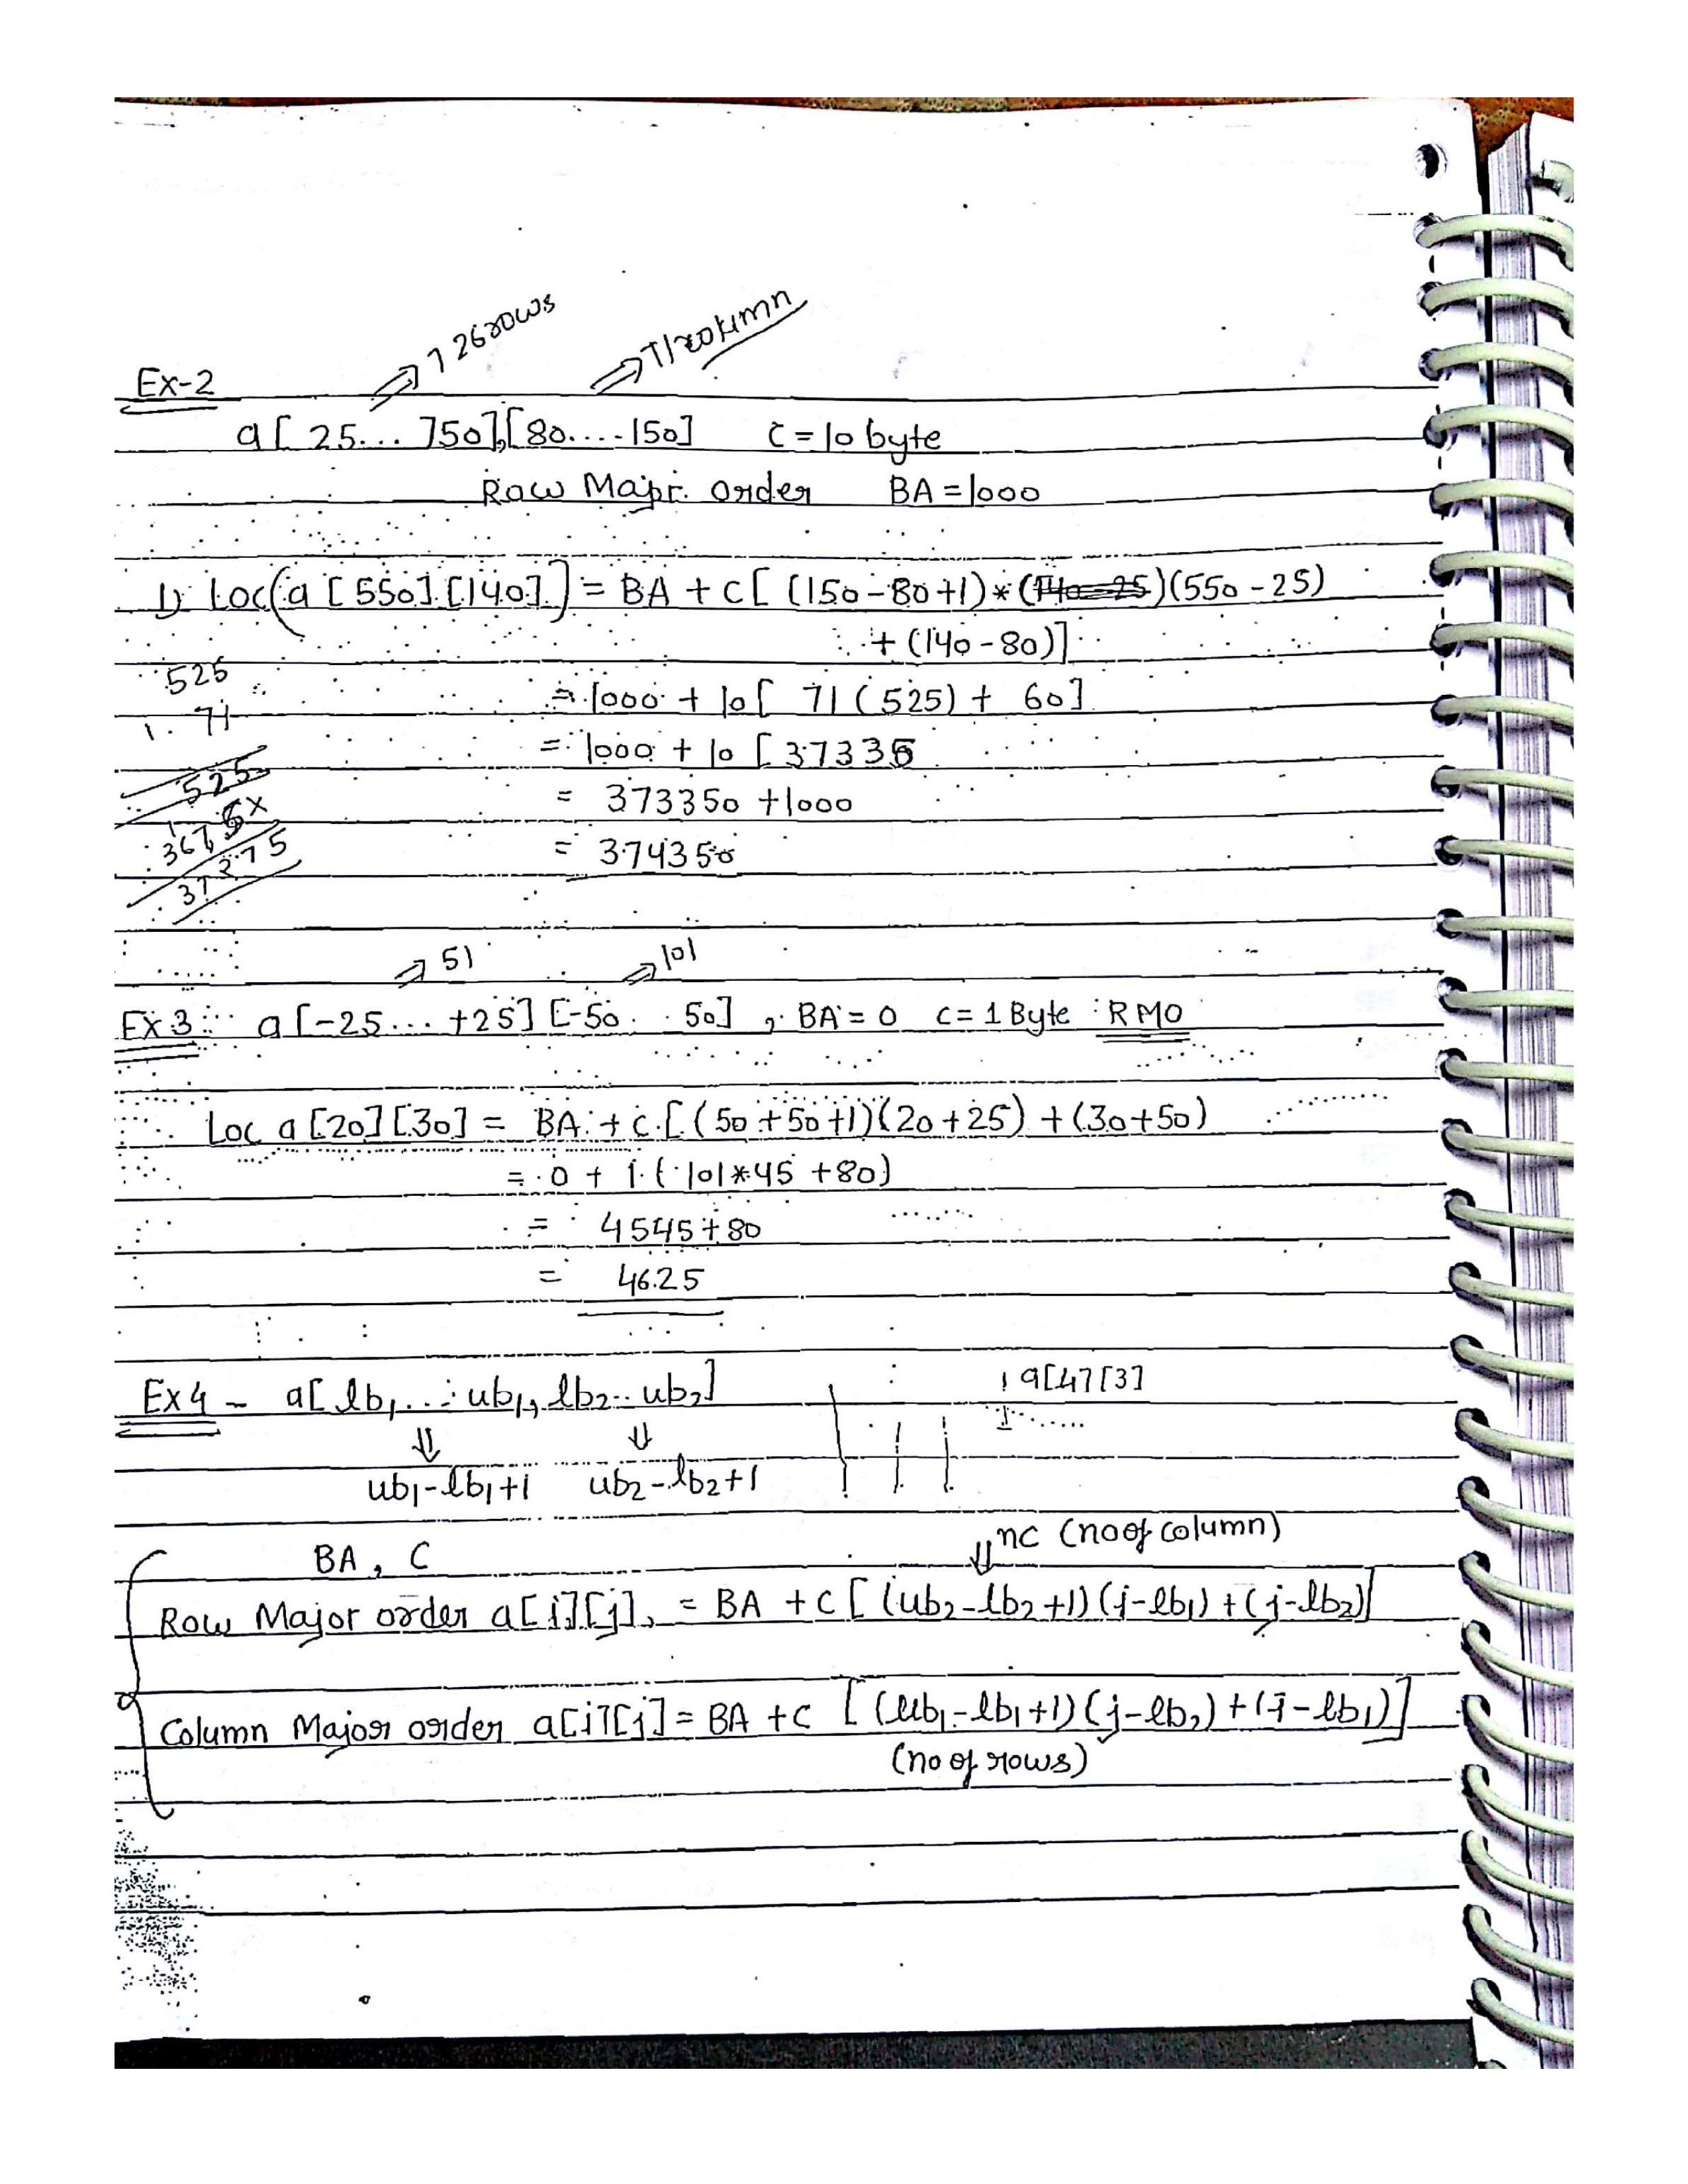 726rows
71column
Ex-2
a[ 25... 750],[80....150] C=10 byte
Row Major order BA=1000
1) Loc(a[550][140]) = BA + C[(150-80+1)*(140-25)(550-25)
+ (140-80)]
525
= 1000 + 10[ 71(525) + 60]
71
= 1000 + 10[37335
525
= 373350 +1000
3675x
= 374350
37275
51 101
Ex3 a[-25... +25][-50.. 50], BA=0 c=1Byte RMO
Loc a[20][30] = BA + C.[(50+50+1)(20+25)+(30+50)
= 0 + 1.(101*45 +80)
= 4545+80
= 4625
Ex4 - a[lb1...ub1, lb2..ub2] a[4][3]
⇓ ⇓
ub1-lb1+1 ub2-lb2+1
⇓nc (no of column)
BA, C
Row Major order a[i][j], = BA +C[(ub2-lb2+1)(i-lb1)+(j-lb2)]
Column Major order a[i][j]= BA +C [(ub1-lb1+1)(j-lb2)+(i-lb1)]
(no of rows)